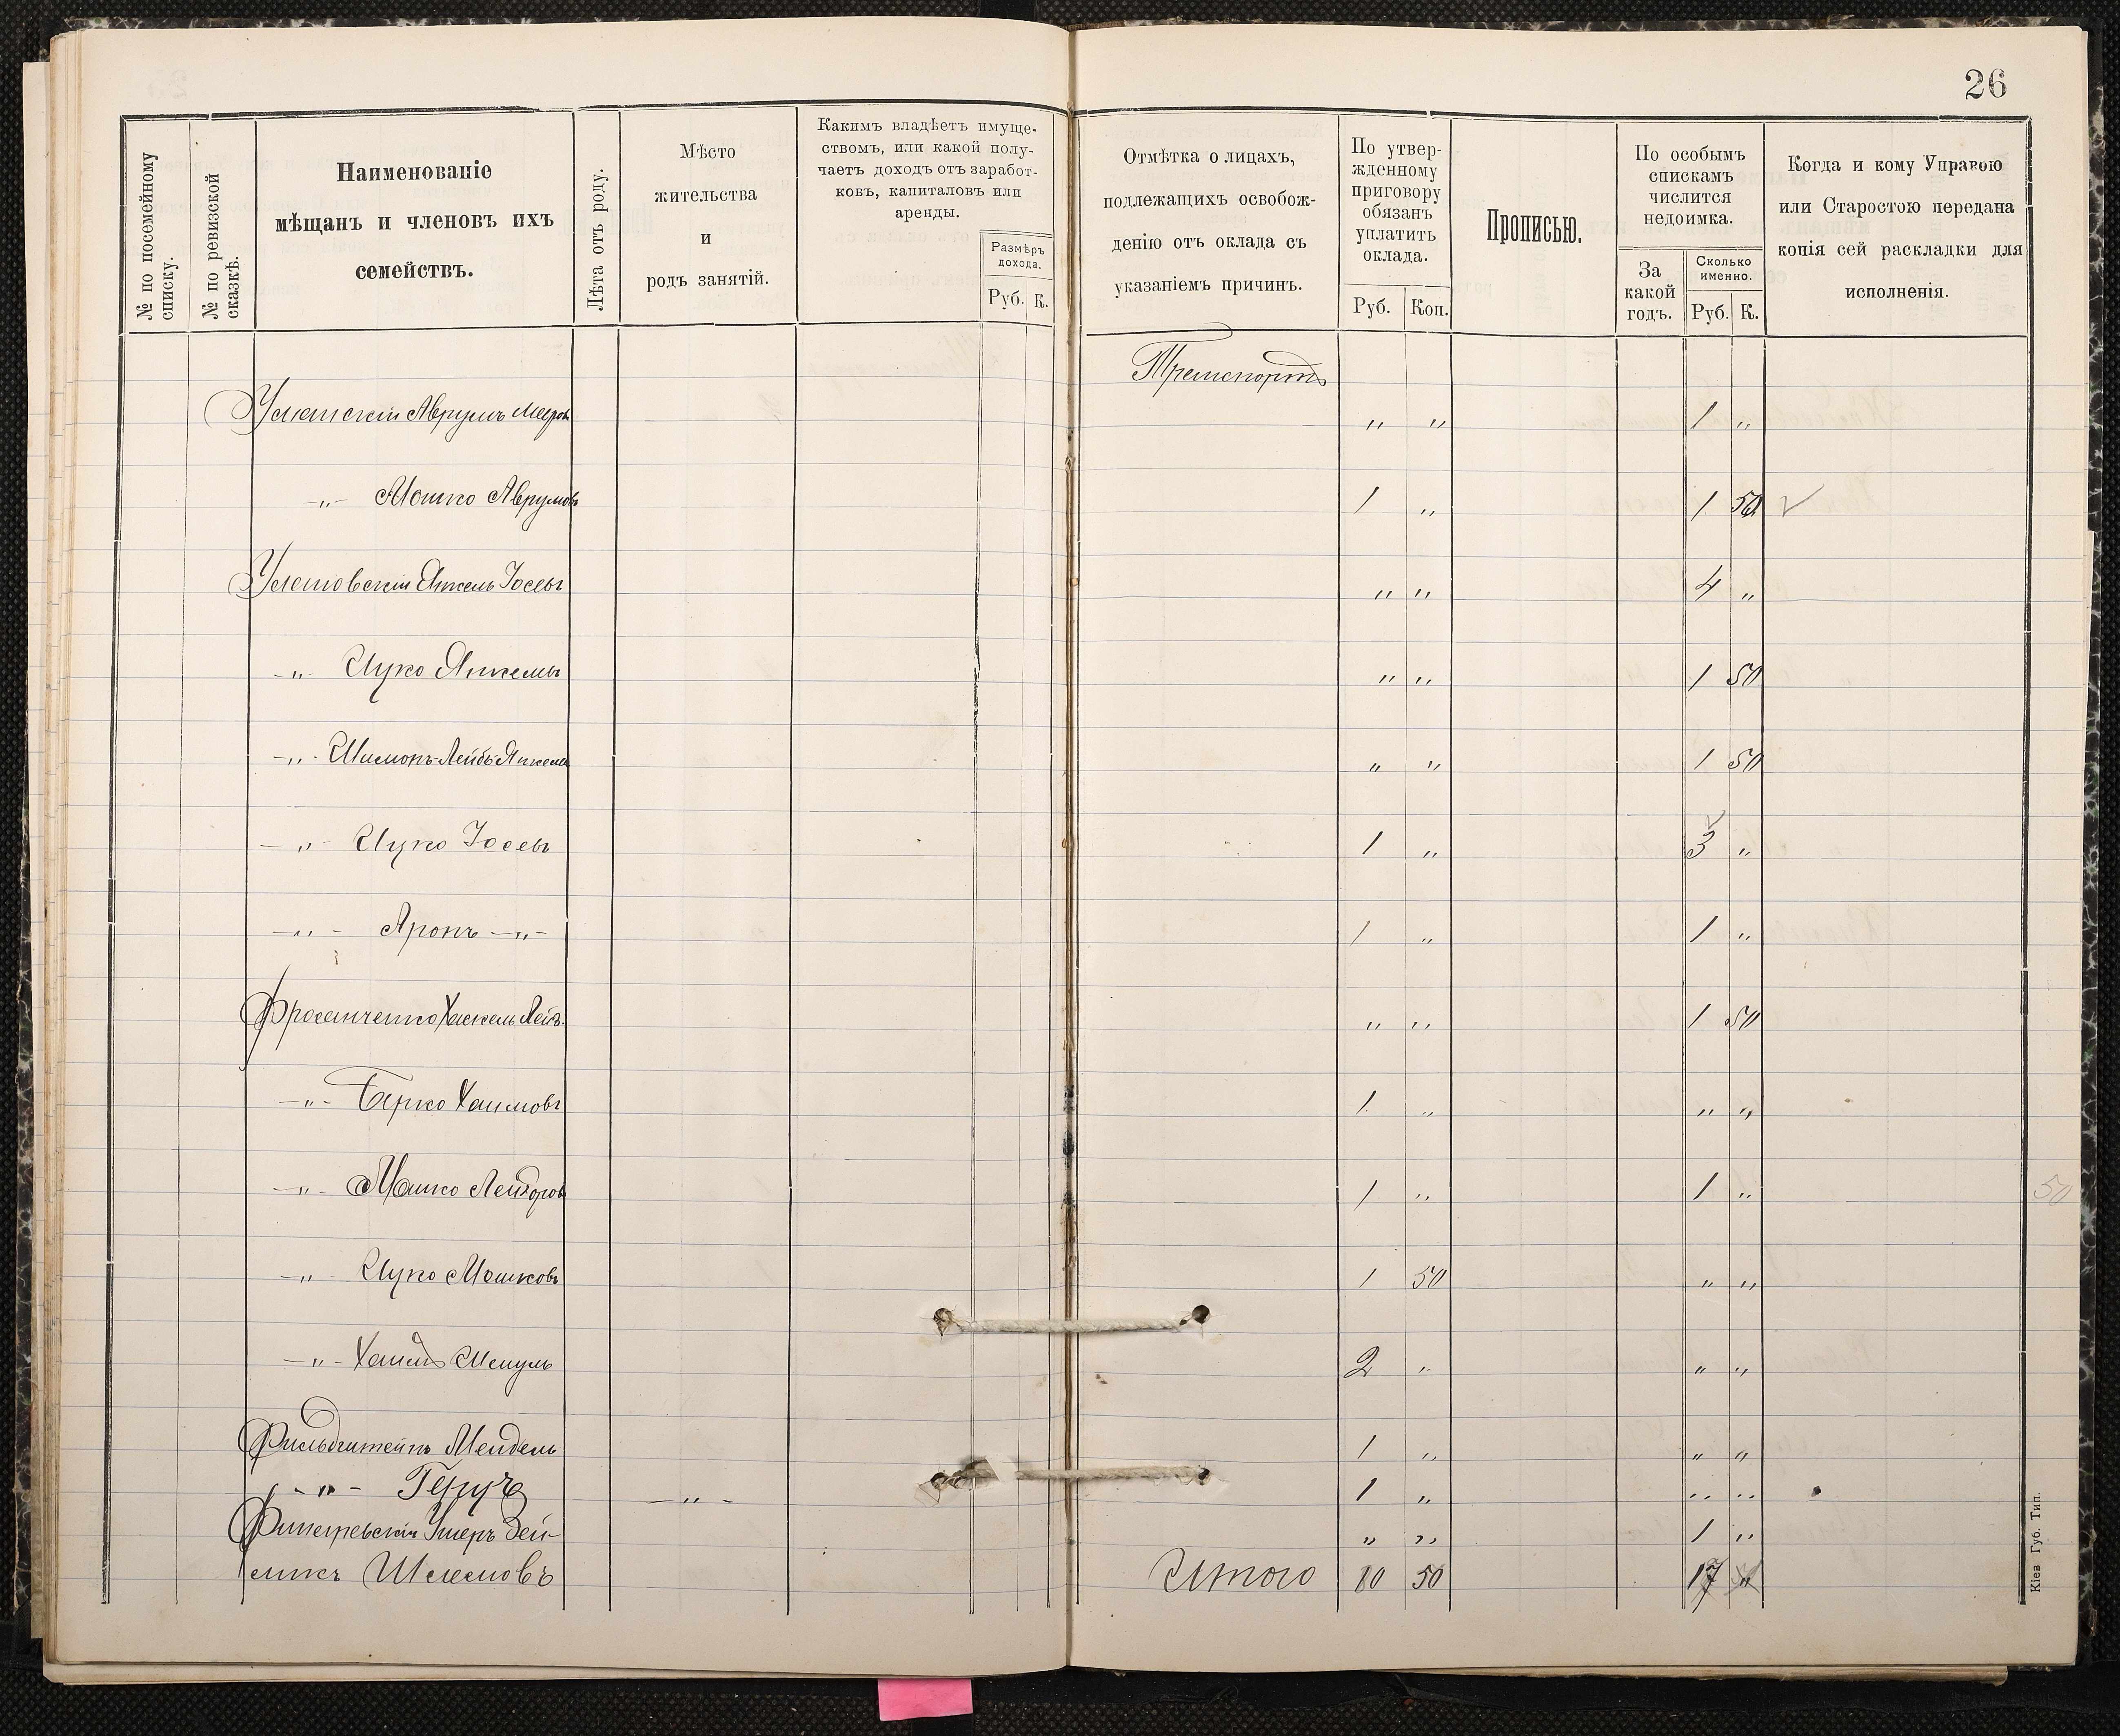 26
№ по посемейному списку.
№ по ревизской сказкѣ.
Наименованіе
мѣщанъ и членовъ ихъ
семействъ.
Лѣта отъ роду.
Мѣсто
жительства
и
родъ занятій.
Какимъ владѣетъ имуще-
ствомъ, или какой полу-
чаетъ доходъ отъ заработ-
ковъ, капиталовъ или
аренды.
Размѣръ
дохода.
Руб. К.
Отмѣтка о лицахъ,
подлежащихъ освобож-
денію отъ оклада съ
указаніемъ причинъ.
По утвер-
жденному
приговору
обязанъ
уплатить
оклада.
Руб. Коп.
Прописью.
По особымъ
спискамъ
числится
недоимка.
За
какой
годъ.
Сколько
именно.
Руб. К.
Когда и кому Управою
или Старостою передана
копія сей раскладки для
исполненія.
Транспортъ
Уманскій Аврумъ „ „ 1 „
-„- Мошко Аврумовъ 1 „ 1 50
Янкель Іосевъ „ „ 4 „
-„- Ицко Янкелевъ „ „ 1 50
-„- Шимонъ-Лейбъ Янкелев „ „ 1 50
-„- Ицко Іосевъ 1 „ 3 „
-„- Аронъ -„- 1 „ 1 „
Хаскель Лейз. „ „ 1 50
-„- Берко Хаимовъ 1 „ „ „
-„- Мошко 1 „ 1 „
50
-„- Ицко Мошковъ 1 50 „ „
-„- Хаимъ 2 „ „ „
Фильдштейнъ Мендель 1 „ „ „
-„- Герцъ -„- 1 „ „ „
Ушеръ Зей- „ „ 1 „
Итого 10 50 17 „
Кіев Губ. Тип.